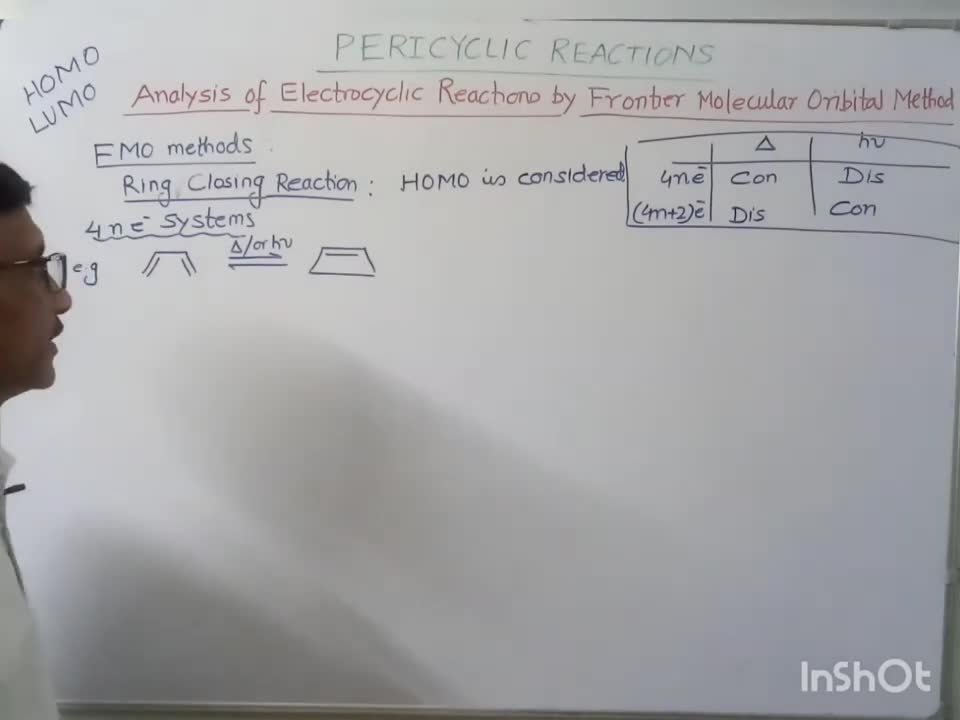 PERICYCLIC REACTIONS
HOMO
LUMO
Analysis of Electrocyclic Reactions by Frontier Molecular Oribital Method
FMO methods
Ring Closing Reaction : HOMO is considered
Δ hν
4nē Con Dis
(4n+2)ē Dis Con
4nē Systems
e.g Δ/or hν
InShOt